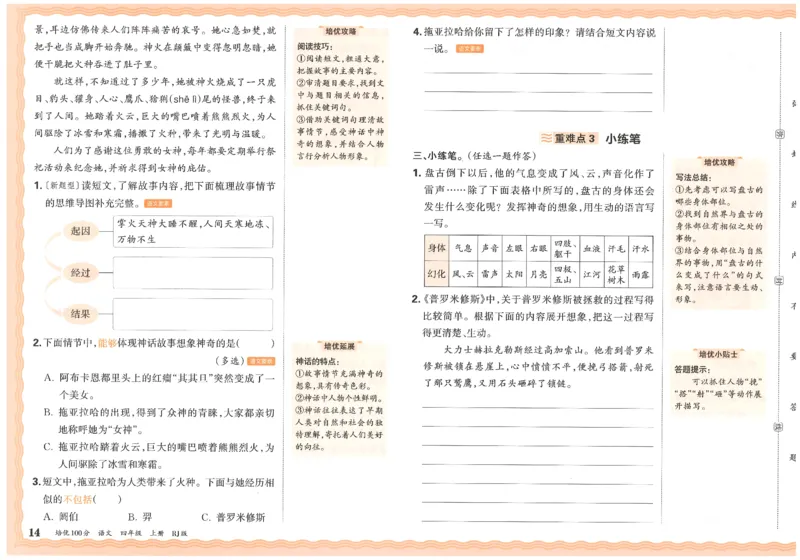 景,耳边仿佛传来人们阵阵痛苦的哀号。她心急如焚,就
把手也当成脚开始奔驰。神火在颠簸中变得忽明忽暗,她
便干脆把火种吞进了肚子里。
就这样,不知道过了多少年,她被神火烧成了一只虎
目、豹头、獾身、人心、鹰爪、猞猁(shē lì)尾的怪兽,终于来
到了人间。她踏着火云,巨大的嘴巴喷着熊熊烈火,为人
间驱除了冰雪和寒霜,播撒了火种,带来了光明与温暖。
人们为了感谢这位勇敢的女神,每年都要定期举行祭
祀活动来纪念她,并祈求得到女神的庇佑。
1.〔新题型〕读短文,了解故事内容,把下面梳理故事情节
的思维导图补充完整。语文要素
起因
掌火天神大睡不醒,人间天寒地冻、
万物不生
经过
结果
2.下面情节中,能够体现神话故事想象神奇的是( )
(多选)语文要素
A. 阿布卡恩都里头上的红瘤“其其旦”突然变成了一
个美女。
B. 拖亚拉哈的出现,得到了众神的青睐,大家都亲切
地称呼她为“女神”。
C. 拖亚拉哈踏着火云,巨大的嘴巴喷着熊熊烈火,为
人间驱除了冰雪和寒霜。
3.短文中,拖亚拉哈为人类带来了火种。下面与她经历相
似的不包括( )
A. 阏伯 B. 羿 C. 普罗米修斯
14 培优100分 语文 四年级 上册 RJ版
培优攻略
阅读技巧:
①阅读短文,粗通大意,
把握故事的主要内容。
②审清题目要求,找到文
中与题目相关的信息,
抓住关键词句。
③借助关键词句理清故
事情节,感受神话中神
奇的想象,并结合人物
言行分析人物形象。
培优拓展
神话的特点:
①故事情节充满神奇的
想象,具有传奇色彩。
②神话中人物个性鲜明。
③神话往往表达了早期
人类对自然和社会的独
特理解,寄托着人们美好
的向往。
4.拖亚拉哈给你留下了怎样的印象?请结合短文内容说
一说。语文要素
重难点3 小练笔
三、小练笔。(任选一题作答)
1.盘古倒下以后,他的气息变成了风、云,声音化作了
雷声……除了下面表格中所写的,盘古的身体还会
发生什么变化呢?发挥神奇的想象,用生动的语言写
一写。
身体 气息 声音 左眼 右眼 四肢、躯干 血液 汗毛 汗水
幻化 风、云 雷声 太阳 月亮 四极、五山 江河 花草树木 雨露
2.《普罗米修斯》中,关于普罗米修斯被拯救的过程写得
比较简单。根据下面的内容展开想象,把这一过程写
得更清楚、生动。
大力士赫拉克勒斯经过高加索山。他看到普罗米
修斯被锁在悬崖上,心中愤愤不平,便挽弓搭箭,射死
了那只鹫鹰,又用石头砸碎了锁链。
培优攻略
写法总结:
①先考虑可以写盘古的
哪些身体部位。
②找到自然界与盘古的
身体部位有相似之处的
事物。
③结合身体部位与自然
界的事物,用“盘古的什
么变成了什么”的句式
来写,注意语言要生动、
形象。
培优小贴士
答题提示:
可以抓住人物“挽”
“搭”“射”“砸”等动作展
开描写。